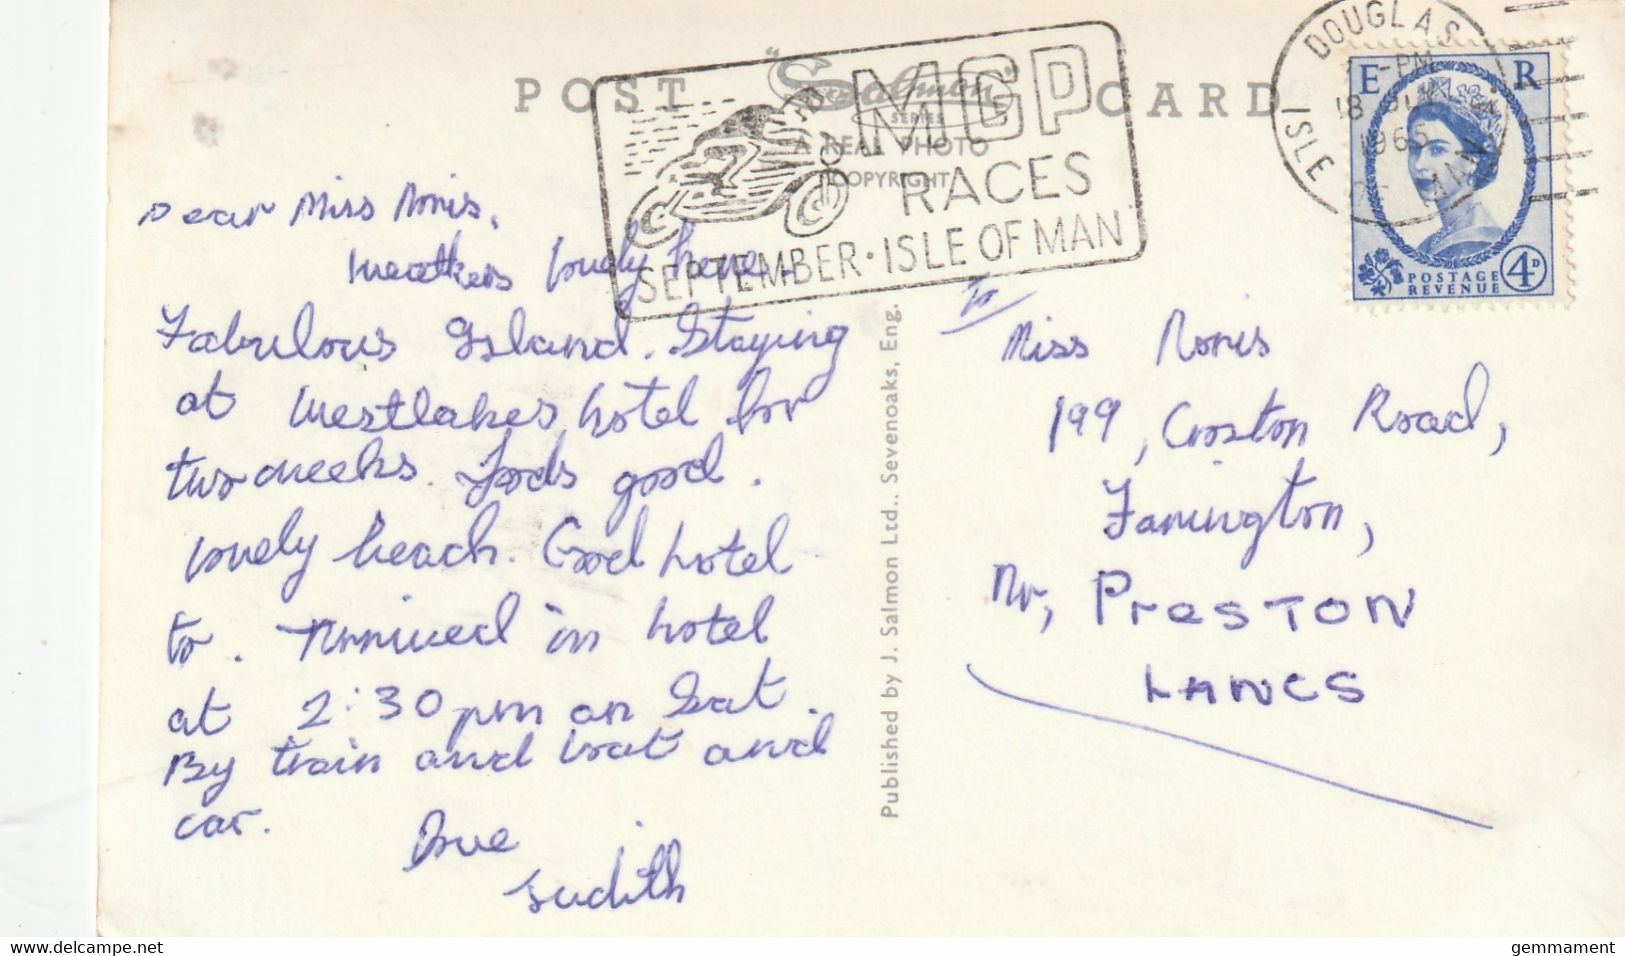 POST CARD
"Salmon
SERIES
A REAL PHOTO
COPYRIGHT
MGP
RACES
SEPTEMBER · ISLE OF MAN
DOUGLAS
-PM
18
1965
ISLE OF MAN
E R
POSTAGE
REVENUE
4D
Dear Miss Norris,
Weathers lovely here.
Fabulous Island. Staying
at Westlakes hotel for
two weeks. Foods good.
lovely beach. Good hotel
to. Arrived in hotel
at 2:30pm on Sat.
By train and boat and
car.
Love
Judith
Published by J. Salmon Ltd., Sevenoaks, Eng.
To
Miss Norris
199, Croston Road,
Farington,
Nr, PresTON
LANCS
www.delcampe.net
gemmament